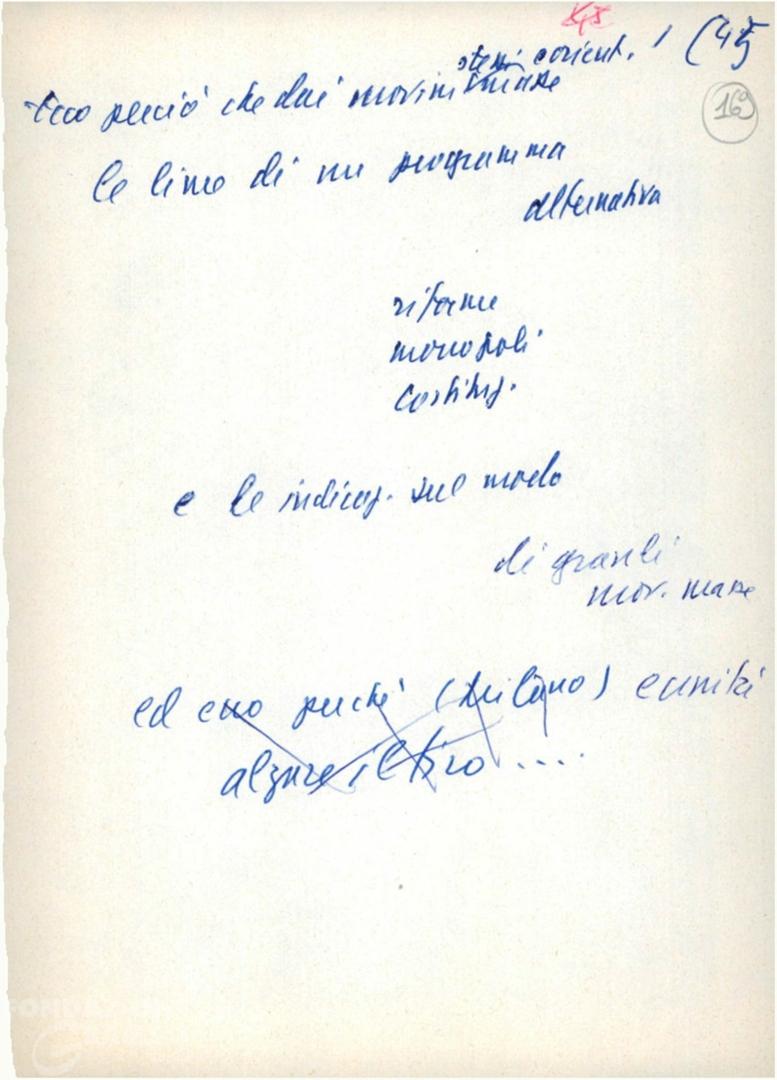 45
stessi e orient. / (45
Ecco perciò che dai movim. masse
169
le linee di un programma
alternativa
riforme
monopoli
costituz.
e le indicaz. sul modo
di grandi
mov. masse
ed ecco perché (Milano) e unità
alzare il tiro ....